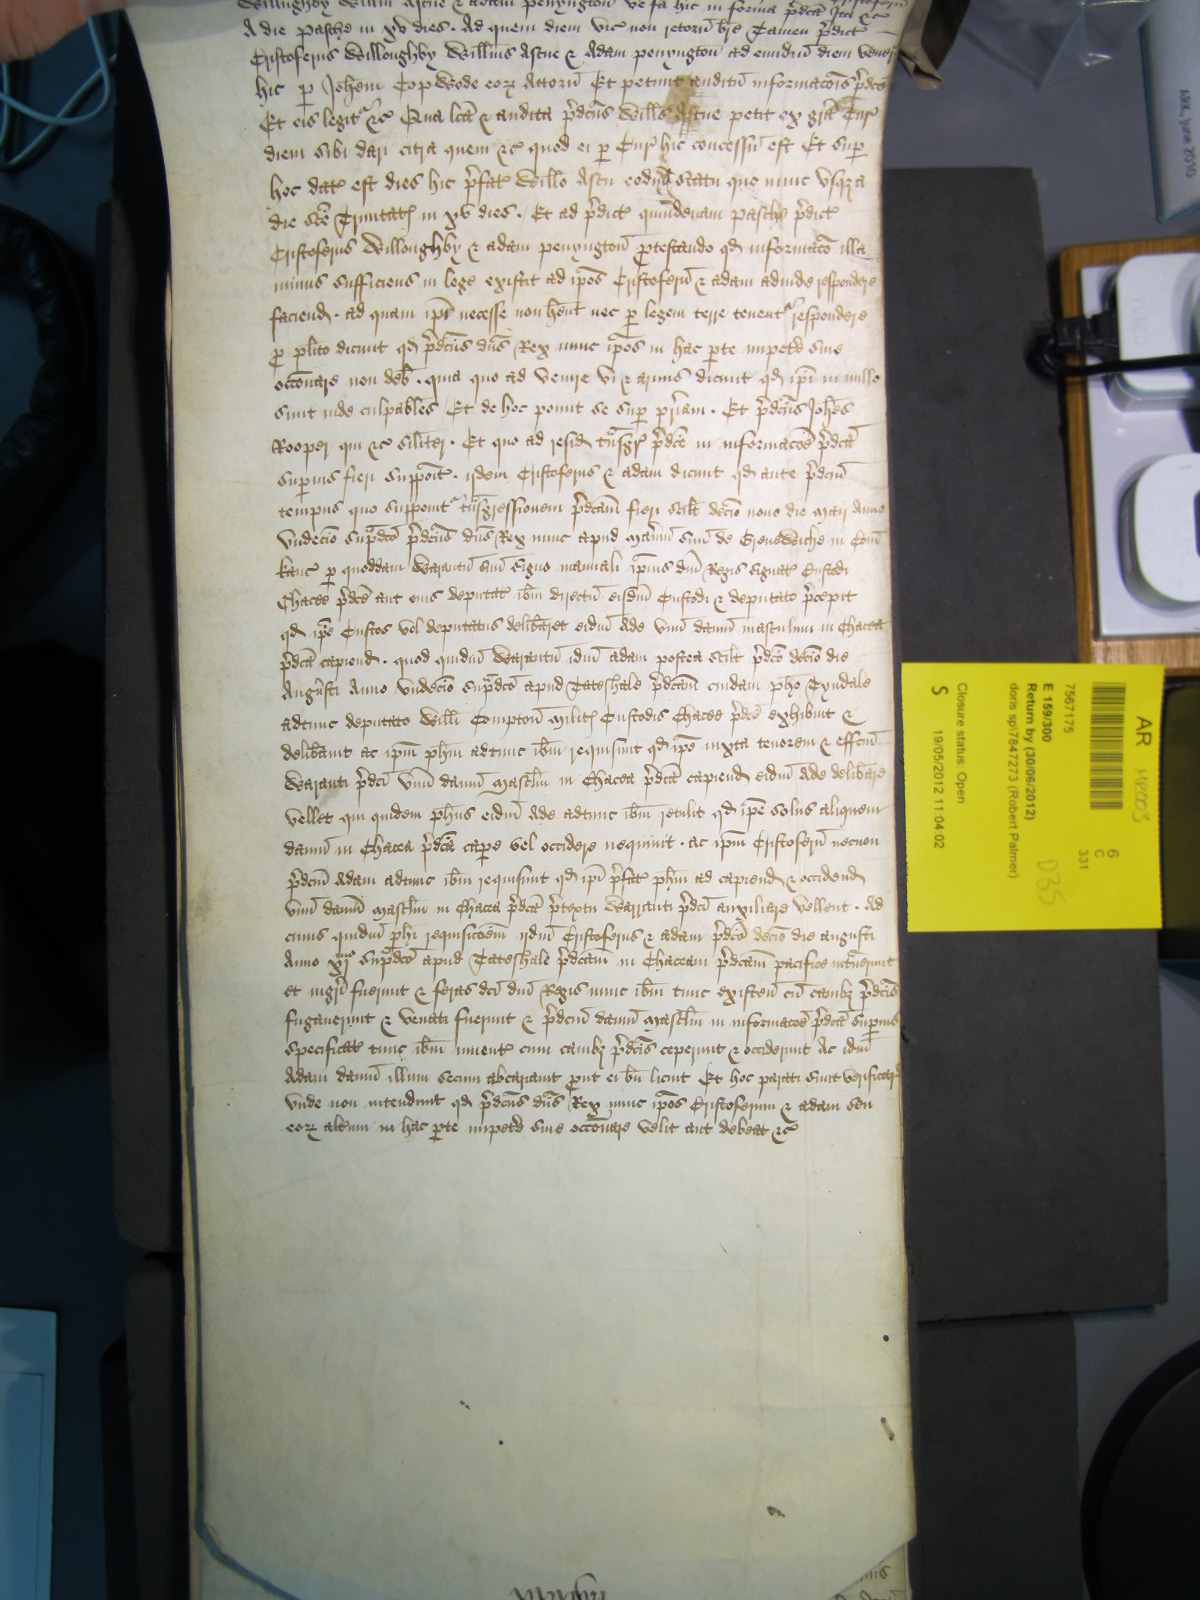 Willughby Willm Astue & adam penyngton ve fa hic in forma p̄dcā Ita &c
A die pasche in xv dies . Ad quem diem vic non retorn̄ br̄e Tamen p̄dict
Cristoferus Willoughby Willms Astue & Adam penyngton ad eundm̄ diem vener
hic p Johem Copwode eorz Attorn̄ Et petunt auditū informacōis p̄dce
Et eis legit r &c Qua lcā & audita p̄dcūs Wills Astue petit ex grā Cur
diem sibi dari citra quem &c quod ei p Cur hic concessū est Et sup
hoc dat est dies hic p̄fat Willo Astu eodm̄ statu quo nunc vsqz a
die sce Trinitat in xv dies . Et ad p̄dict quindenam pasche p̄dict
Cristoferus Willoughby & adam penyngton ptestando qd informatō illa
minus sufficiens in lege existit ad ipōs Cristoferū & adam adinde respondere
faciend . ad quam ipi necesse non hēnt nec p legem terre tenent r respondere
p plito dicunt qd p̄dcūs dn̄s Rex nunc ipōs in hac pte impetē siue
occōnare non deb . quia quo ad venire vi & armis dicunt qd ipi in nullo
sunt inde culpabl̄es Et de hoc ponut se sup pr̄iam . Et p̄dcūs Joh̄es
Rooper qui &c similiter . Et quo ad resid tnsgr p̄dce in informacōe p̄dcā
superius fieri suppoit . ijdem Cristoferus & adam dicunt qd ante p̄dcm̄
tempus quo supponit r tnsgressionem p̄dcam fieri scilt decīo nono die maij Anno
vndecīo sup̄dco p̄dcūs dn̄s Rex nunc apud man̄m suū de Grenewiche in Com̄
kanc p quoddam Warantū suū signo manuali ip̄ius dn̄i Regis signat Custodi
Chacee p̄dce aut eius deputat ib̄m directū eisdm̄ Custodi & deputato p̄cepit
qd ip̄e Custos vel deputatus delib̄aret eidm̄ Ade vnū damū masculum in Chacea
p̄dcā capiend . quod quidm̄ Warantū idm̄ adam postea scilt p̄dco decīo die
Augusti Anno vndecīo sup̄dco apud Tateshale p̄dcam cuidam pho Tyndale
adtunc deputato Willi Compton milit Custodis Chacee p̄dce exhibuit &
delib̄auit ac ip̄m phm adtunc ib̄m requisiuit qd ip̄e iuxta tenorem & effcm̄
Waranti p̄dcī vnū damū mascl̄m in Chacea p̄dcā capiend eidm̄ Ade delib̄are
vellet qui quidem phus eidm̄ Ade adtunc ib̄m retulit qd ip̄e solus aliquem
damū in Chacea p̄dcā cape vel occidere nequiuit . ac ip̄m Cristoferū necnon
p̄dcm̄ Adam adtunc ib̄m requisiuit qd ipi p̄fat phm ad capiend & occidend
vnū damū mascl̄m in Chacea p̄dcā p̄textu Warranti p̄dcī auxiliare vellent . Ad
cuius quidm̄ phi requisicōem ijdm̄ Cristoferus & adam p̄dco decīo die augusti
Anno xjmo sup̄dco apud Tateshale p̄dcam in Chaceam p̄dcam pacifice intrauerunt
et ingr̄i fuerunt & feras dcī dn̄i Regis nunc ib̄m tunc existen̄ cū canibz p̄dcis
fugauerunt & venati fuerunt & p̄dcm̄ damū mascl̄m in informacōe p̄dcā superius
specificat tunc ib̄m inuent cum canibz p̄dcis ceperunt & occiderunt Ac idm̄
Adam damū illum secum abcariauit put ei bn̄ licuit Et hoc parati sunt verificare
vnde non intendunt qd p̄dcūs dn̄s Rex nunc ipōs Cristoferum & adam seu
eorz altum in hac pte impetē siue occōnare velit aut debeat &c
AR
7567175
E 159/300
Return by (30/06/2012)
doris sp\7847273 (Robert Palmer)
Closure status: Open
S 19/05/2012 11:04:02
6
C
331
D35